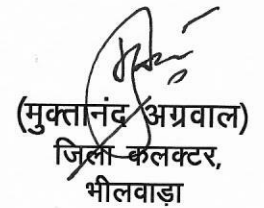 (मुक्तानंद अग्रवाल)
जिला कलक्टर,
भीलवाड़ा